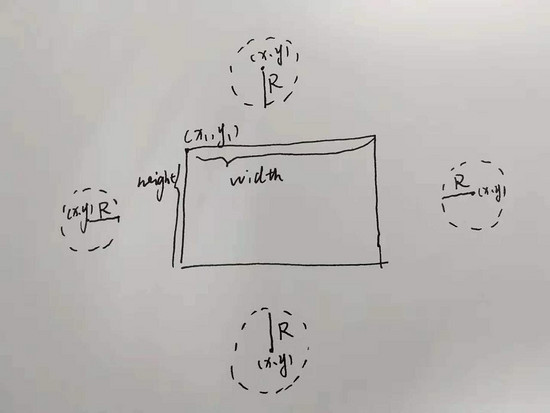 (x,y)
R
(x1,y1)
height
width
(x,y) R
R
(x,y)
R
(x,y)